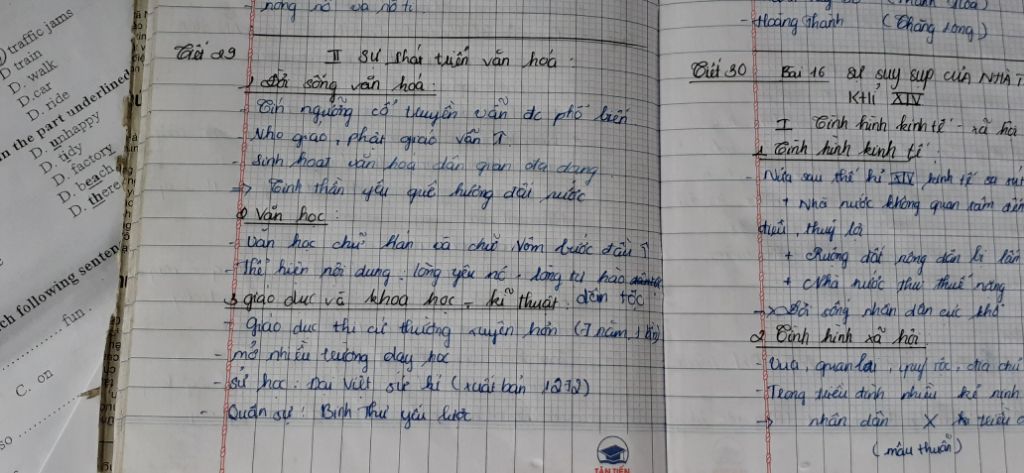 traffic jams
D. train
D. walk
D. car
D. ride
n the part underlined
D. unhappy
D. tidy
D. factory
D. beach
D. there
ch following senten
fun.
C. on
so
nóng nỏ và nỏ ti.
Tiết 29
II Sự phát triển văn hoá:
1 Đời sống văn hoá:
- Tín ngưỡng cổ truyền vẫn đc phổ biến
- Nho giao, phật giáo vẫn ↑.
- Sinh hoạt văn hoá dân gian đa dạng
-> Tinh thần yêu quê hướng đất nước
2 Văn học:
- Văn học chữ Hán và chữ Nôm bước đầu ↑
- Thể hiện nội dung: lòng yêu nc, lòng tự hào
dân tộc
3 giáo dục và khoa học - kĩ thuật.
- Giáo dục thi cử thường xuyên hơn (7 năm, 1 lần)
- mở nhiều trường dạy học
- sử học: Đại Việt sử kí (xuất bản 1272)
- Quân sự: Binh Thư yếu lược
TÂN TIẾN
- Hoàng Thành (Thăng Long)
Tiết 30 Bài 16 sự suy sụp của NHÀ T
K+lỉ XIV
I Tình hình kinh tế - xã hội
1. Tình hình kinh tế:
- Nửa sau thế kỉ XIV, kinh tế sa sút
+ Nhà nước không quan tâm đến
điều, thuỷ lợi
+ Ruộng đất nông dân bị lấn
+ Nhà nước thu thuế nặng
-> Đời sống nhân dân cực khổ
2 Tình hình xã hội
- Vua, quan lại, quý tộc, địa chủ
- Trong triều đình nhiều kẻ nịnh
-> nhân dân X triều
(mâu thuẫn)